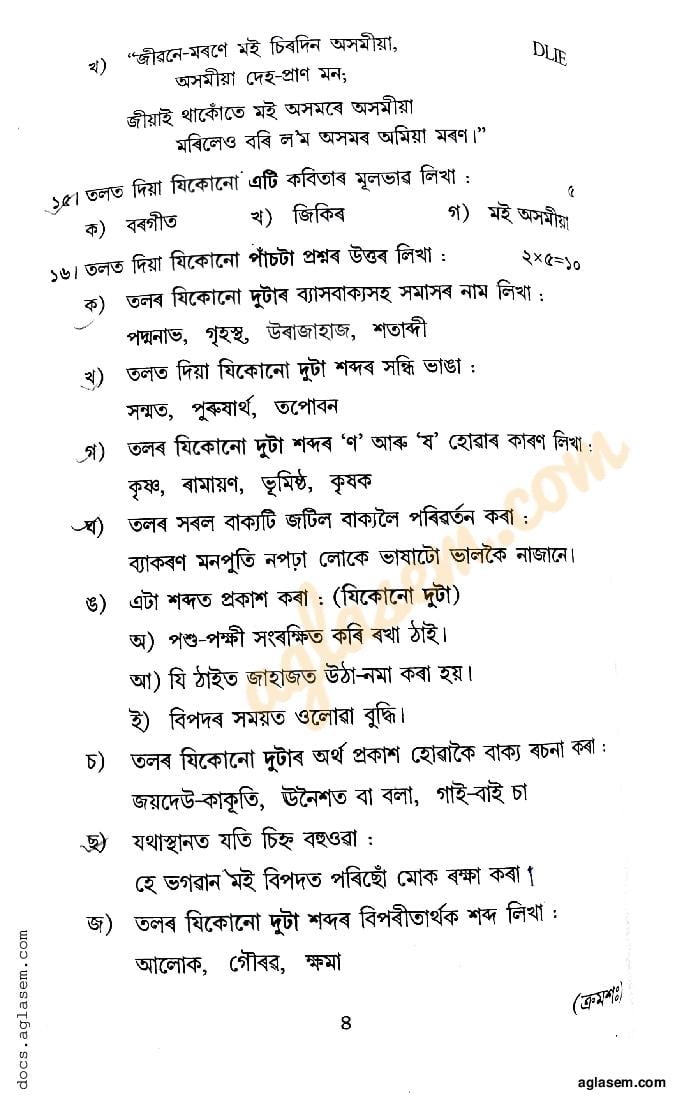 DLIE
খ) “জীৱনে-মৰণে মই চিৰদিন অসমীয়া,
অসমীয়া দেহ-প্ৰাণ মন;
জীয়াই থাকোঁতে মই অসমৰে অসমীয়া
মৰিলেও বৰি ল'ম অসমৰ অমিয়া মৰণ।”
১৫। তলত দিয়া যিকোনো এটি কবিতাৰ মূলভাৱ লিখা : ৫
ক) বৰগীত খ) জিকিৰ গ) মই অসমীয়া
১৬। তলত দিয়া যিকোনো পাঁচটা প্ৰশ্নৰ উত্তৰ লিখা : ২×৫=১০
ক) তলৰ যিকোনো দুটাৰ ব্যাসবাক্যসহ সমাসৰ নাম লিখা :
পদ্মনাভ, গৃহস্থ, উৰাজাহাজ, শতাব্দী
খ) তলত দিয়া যিকোনো দুটা শব্দৰ সন্ধি ভাঙা :
সন্মত, পুৰুষাৰ্থ, তপোবন
গ) তলৰ যিকোনো দুটা শব্দৰ ‘ণ’ আৰু ‘ষ’ হোৱাৰ কাৰণ লিখা :
কৃষ্ণ, ৰামায়ণ, ভূমিষ্ঠ, কৃষক
ঘ) তলৰ সৰল বাক্যটি জটিল বাক্যলৈ পৰিৱৰ্তন কৰা :
ব্যাকৰণ মনপুতি নপঢ়া লোকে ভাষাটো ভালকৈ নাজানে।
ঙ) এটা শব্দত প্ৰকাশ কৰা : (যিকোনো দুটা)
অ) পশু-পক্ষী সংৰক্ষিত কৰি ৰখা ঠাই।
আ) যি ঠাইত জাহাজত উঠা-নমা কৰা হয়।
ই) বিপদৰ সময়ত ওলোৱা বুদ্ধি।
চ) তলৰ যিকোনো দুটাৰ অৰ্থ প্ৰকাশ হোৱাকৈ বাক্য ৰচনা কৰা :
জয়দেউ-কাকূতি, ঊনৈশত বা বলা, গাই-বাই চা
ছ) যথাস্থানত যতি চিহ্ন বহুওৱা :
হে ভগৱান মই বিপদত পৰিছোঁ মোক ৰক্ষা কৰা।
জ) তলৰ যিকোনো দুটা শব্দৰ বিপৰীতাৰ্থক শব্দ লিখা :
আলোক, গৌৰৱ, ক্ষমা
(ক্ৰমশঃ)
8
docs.aglasem.com
aglasem.com
aglasem.com